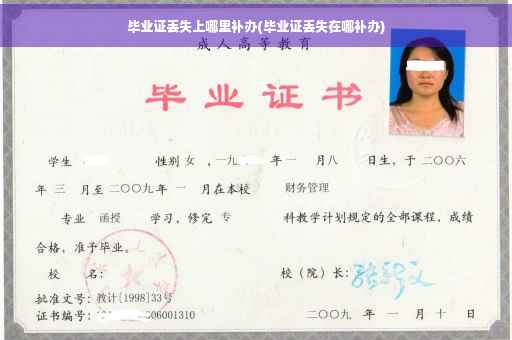 毕业证丢失上哪里补办(毕业证丢失在哪补办)
成人高等教育
毕业证书
学生 性别 女 ,一九 年一 月八 日生,于二〇〇六
年 三 月至二〇〇九年 一 月在本校 财务管理
专业 函授 学习,修完 专 科教学计划规定的全部课程,成绩
合格,准予毕业。
校 名: 校(院)长:
批准文号:教计[1998]33号
证书编号: 06001310 二〇〇九 年 一 月 十 日